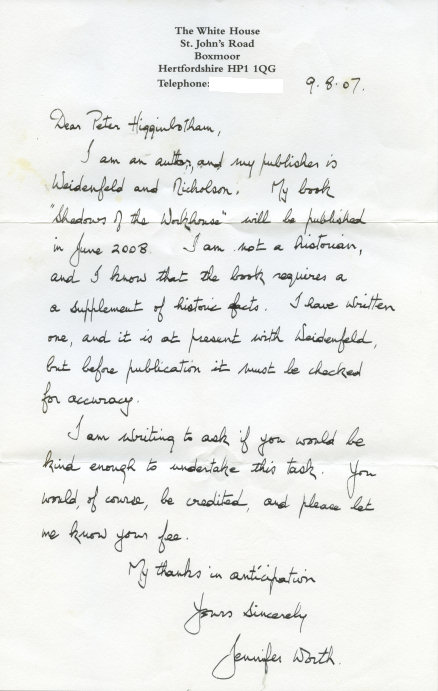 The White House
St. John's Road
Boxmoor
Hertfordshire HP1 1QG
Telephone:
9.8.07.
Dear Peter Higginbotham,
I am an author, and my publisher is
Weidenfeld and Nicholson. My book
"Shadows of the Workhouse" will be published
in June 2008. I am not a historian,
and I know that the book requires a
a supplement of historic facts. I have written
one, and it is at present with Weidenfeld,
but before publication it must be checked
for accuracy.
I am writing to ask if you would be
kind enough to undertake this task. You
would, of course, be credited, and please let
me know your fee.
My thanks in anticipation
Yours Sincerely
Jennifer Worth.